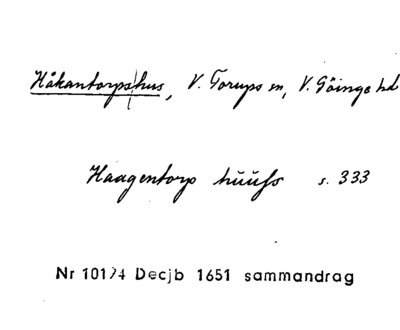 Håkantorps|hus, V. Torups sn, V. Göinge hd
Haagentorp hüüſs s. 333
Nr 10124 Decjb 1651 sammandrag